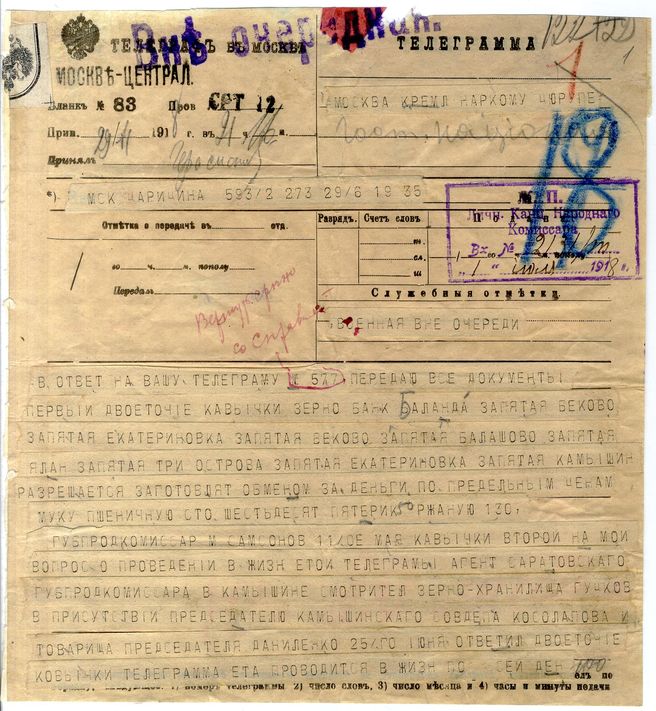 ТЕЛЕГРАФЪ ВЪ МОСКВѢ
Внѣ очередная.
ТЕЛЕГРАММА
122
МОСКВѢ-ЦЕНТРАЛ.
Бланкъ № 83
СРТ 12
МОСКВА КРЕМЛ НАРКОМУ ЦЮРУПЕ
Прин. 29/VI 1918 г. въ 21 ч.
Принялъ
МСК ЦАРИЦИНА 593/2 273 29/6 19 35
Отмѣтка о передачѣ въ отд.
Разрядъ. Счетъ словъ
го ч. м. полу
Передалъ
Личн. Канц. Народнаго
Комиссара
Вх. №
"1" июля 1918 г.
Служебныя отмѣтки.
Вернуть срочно
со справкой
ВОЕННАЯ ВНЕ ОЧЕРЕДИ
В ОТВЕТ НА ВАШУ ТЕЛЕГРАМУ № 577 ПЕРЕДАЮ ВСЕ ДОКУМЕНТЫ
ПЕРВЫЙ ДВОЕТОЧІЕ КАВЫЧКИ ЗЕРНО БАНК БАЛАНДА ЗАПЯТАЯ БЕКОВО
ЗАПЯТАЯ ЕКАТЕРИНОВКА ЗАПЯТАЯ БЕКОВО ЗАПЯТАЯ БАЛАШОВО ЗАПЯТАЯ
ЯЛАН ЗАПЯТАЯ ТРИ ОСТРОВА ЗАПЯТАЯ ЕКАТЕРИНОВКА ЗАПЯТАЯ КАМЫШИН
РАЗРЕШАЕТСЯ ЗАГОТОВЦЯТ ОБМЕНОМ ЗА ДЕНЬГИ ПО ПРЕДЕЛЬНЫМ ЦЕНАМ
МУКУ ПШЕНИЧНУЮ СТО ШЕСТЬДЕСЯТ ПЯТЕРИК РЖАНУЮ 130,
ГУБПРОДКОМИССАР М САМСОНОВ 11/20Е МАЯ КАВЫЧКИ ВТОРОЙ НА МОИ
ВОПРОС О ПРОВЕДЕНІИ В ЖИЗН ЕТОЙ ТЕЛЕГРАМЫ АГЕНТ САРАТОВСКАГО
ГУБПРОДКОМИССАРА В КАМЫШИНЕ СМОТРИТЕЛ ЗЕРНО-ХРАНИЛИЩА ГУЧКОВ
В ПРИСУТСТВІИ ПРЕДСЕДАТЕЛЮ КАМЫШИНСКАГО СОВДЕПА КОСОЛАПОВА И
ТОВАРИЩА ПРЕДСЕДАТЕЛЯ ДАНИЛЕНКО 25/ГО ІЮНЯ ОТВЕТИЛ ДВОЕТОЧІЕ
КОВЫЧКИ ТЕЛЕГРАММА ЕТА ПРОВОДИТСЯ В ЖИЗН ПО СЕЙ ДЕН
1) номеръ телеграммы 2) число словъ, 3) число мѣсяца и 4) часы и минуты подачи